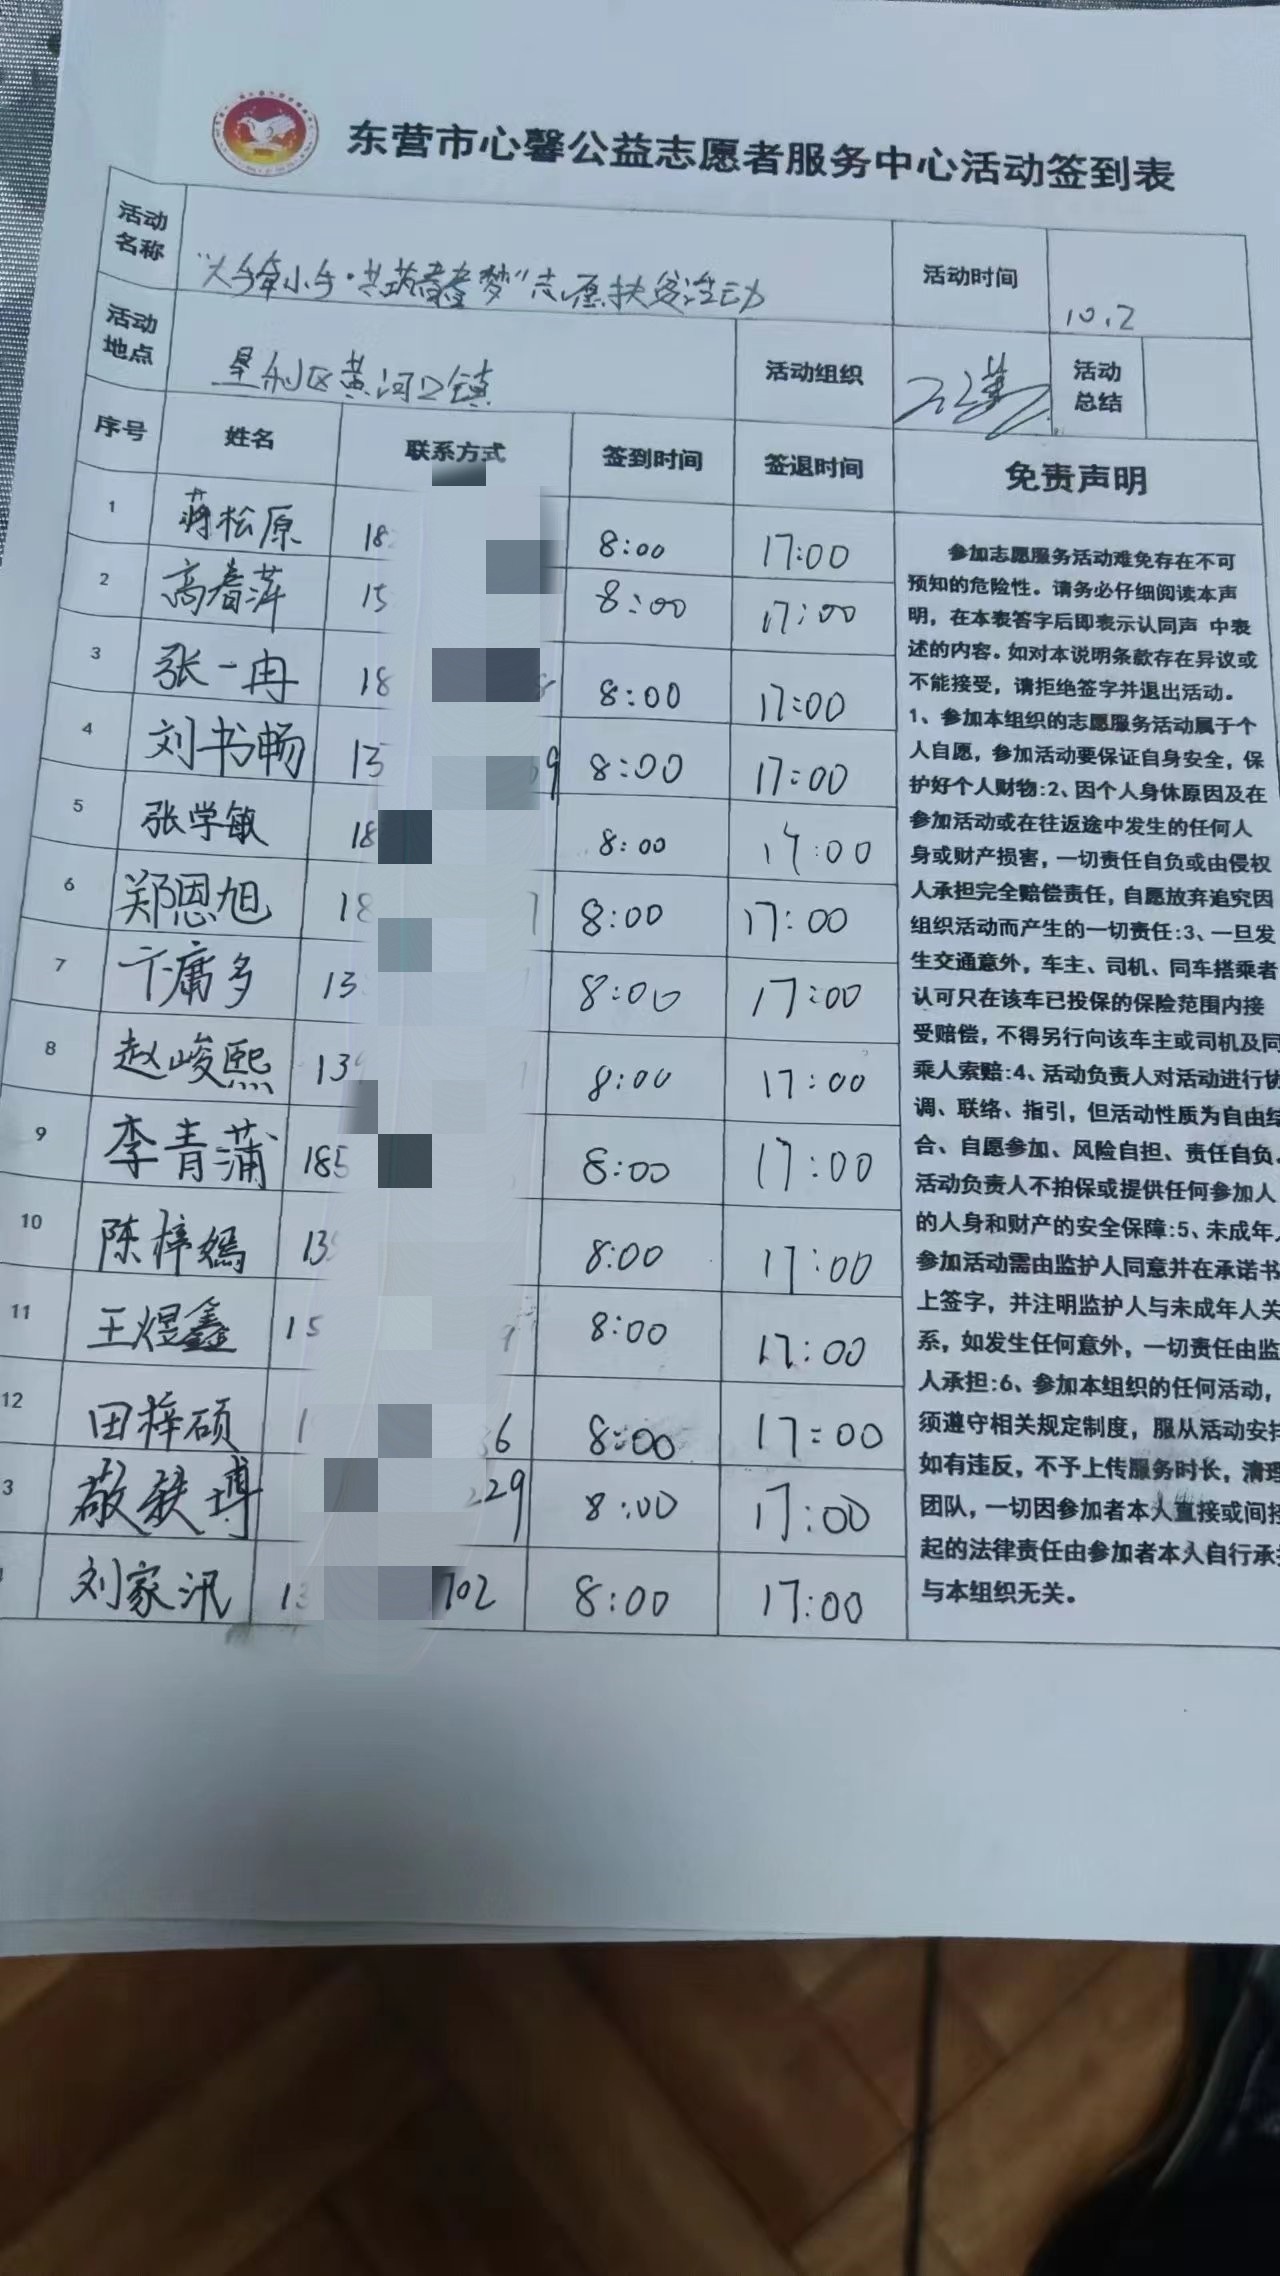 东营市心馨公益志愿者服务中心活动签到表
活动名称 "大手牵小手·共筑青春梦"志愿扶贫活动 活动时间 10.2
活动地点 垦利区黄河口镇 活动组织 活动总结
序号 姓名 联系方式 签到时间 签退时间 免责声明
1 蒋松原 18 8:00 17:00
2 高春萍 15 8:00 17:00
3 张一冉 18 8:00 17:00
4 刘书畅 15 59 8:00 17:00
5 张学敏 18 8:00 17:00
6 郑恩旭 18 8:00 17:00
7 庸多 13 8:00 17:00
8 赵峻熙 13 8:00 17:00
9 李青蒲 185 8:00 17:00
10 陈梓嫣 13 8:00 17:00
11 王煜鑫 15 9 8:00 17:00
12 田梓硕 1 6 8:00 17:00
3 敬轶博 229 8:00 17:00
刘家汛 13 702 8:00 17:00
参加志愿服务活动难免存在不可
预知的危险性。请务必仔细阅读本声
明，在本表答字后即表示认同声 中表
述的内容。如对本说明条款存在异议或
不能接受，请拒绝签字并退出活动。
1、参加本组织的志愿服务活动属于个
人自愿，参加活动要保证自身安全，保
护好个人财物:2、因个人身休原因及在
参加活动或在往返途中发生的任何人
身或财产损害，一切责任自负或由侵权
人承担完全赔偿责任，自愿放弃追究因
组织活动而产生的一切责任:3、一旦发
生交通意外，车主、司机、同车搭乘者
认可只在该车已投保的保险范围内接
受赔偿，不得另行向该车主或司机及同
乘人索赔:4、活动负责人对活动进行协
调、联络、指引，但活动性质为自由结
合、自愿参加、风险自担、责任自负、
活动负责人不拍保或提供任何参加人
的人身和财产的安全保障:5、未成年人
参加活动需由监护人同意并在承诺书
上签字，并注明监护人与未成年人关
系，如发生任何意外，一切责任由监
人承担:6、参加本组织的任何活动，
须遵守相关规定制度，服从活动安排
如有违反，不予上传服务时长，清理
团队，一切因参加者本人直接或间接
起的法律责任由参加者本人自行承担
与本组织无关。